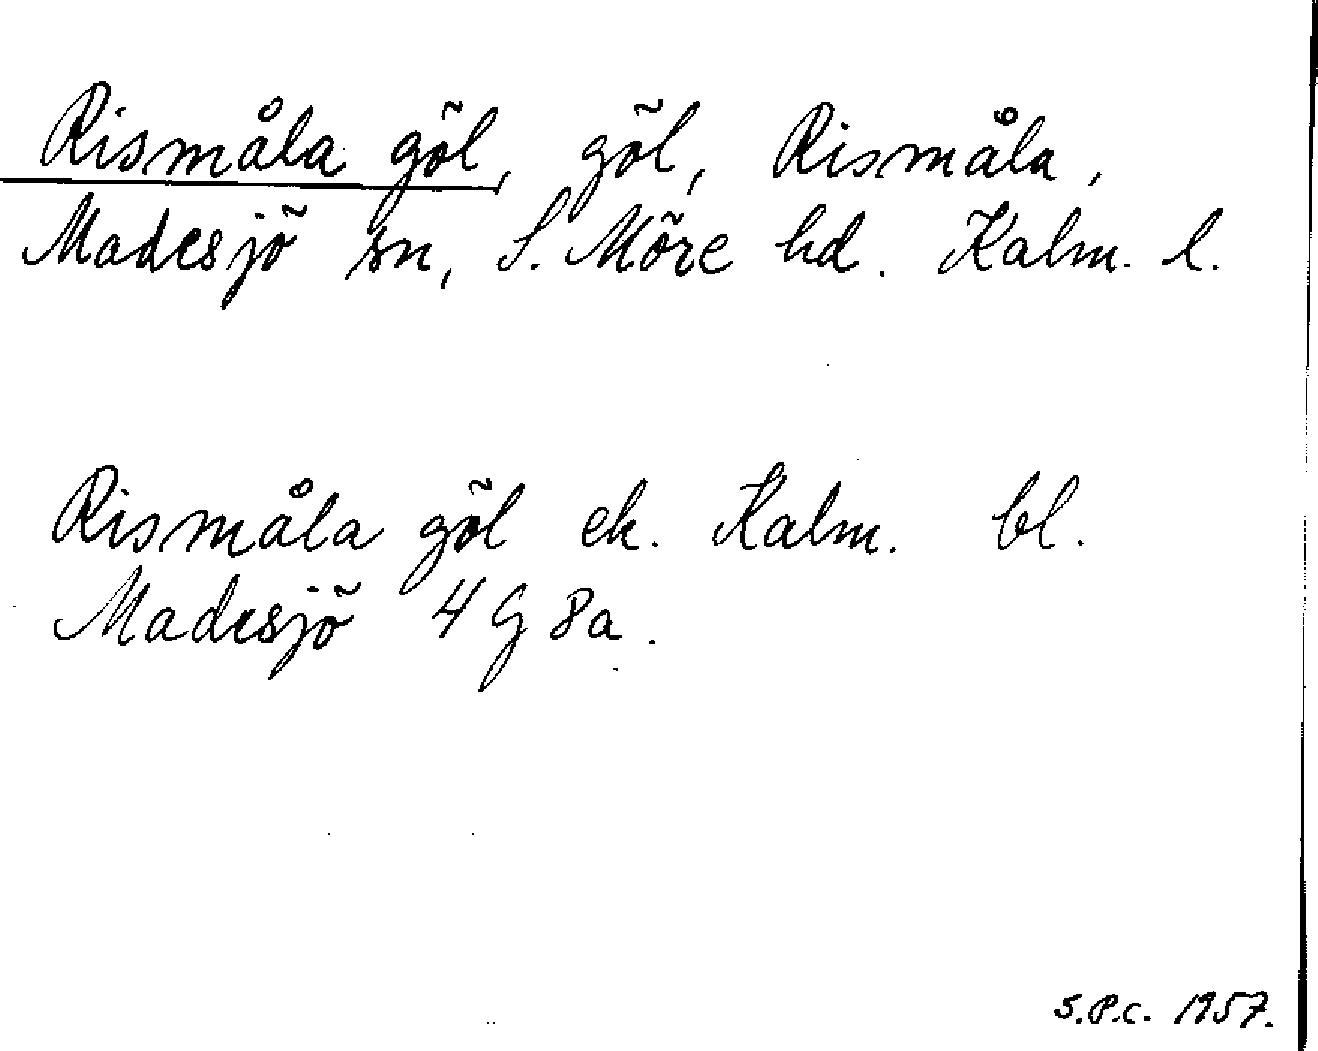 Rismåla göl, göl, Rismåla,
Madesjö sn, S. Möre hd. Kalm. l.
Rismåla göl ek. Kalm. bl.
Madesjö 4 G 8a.
S.P.C. 1957.